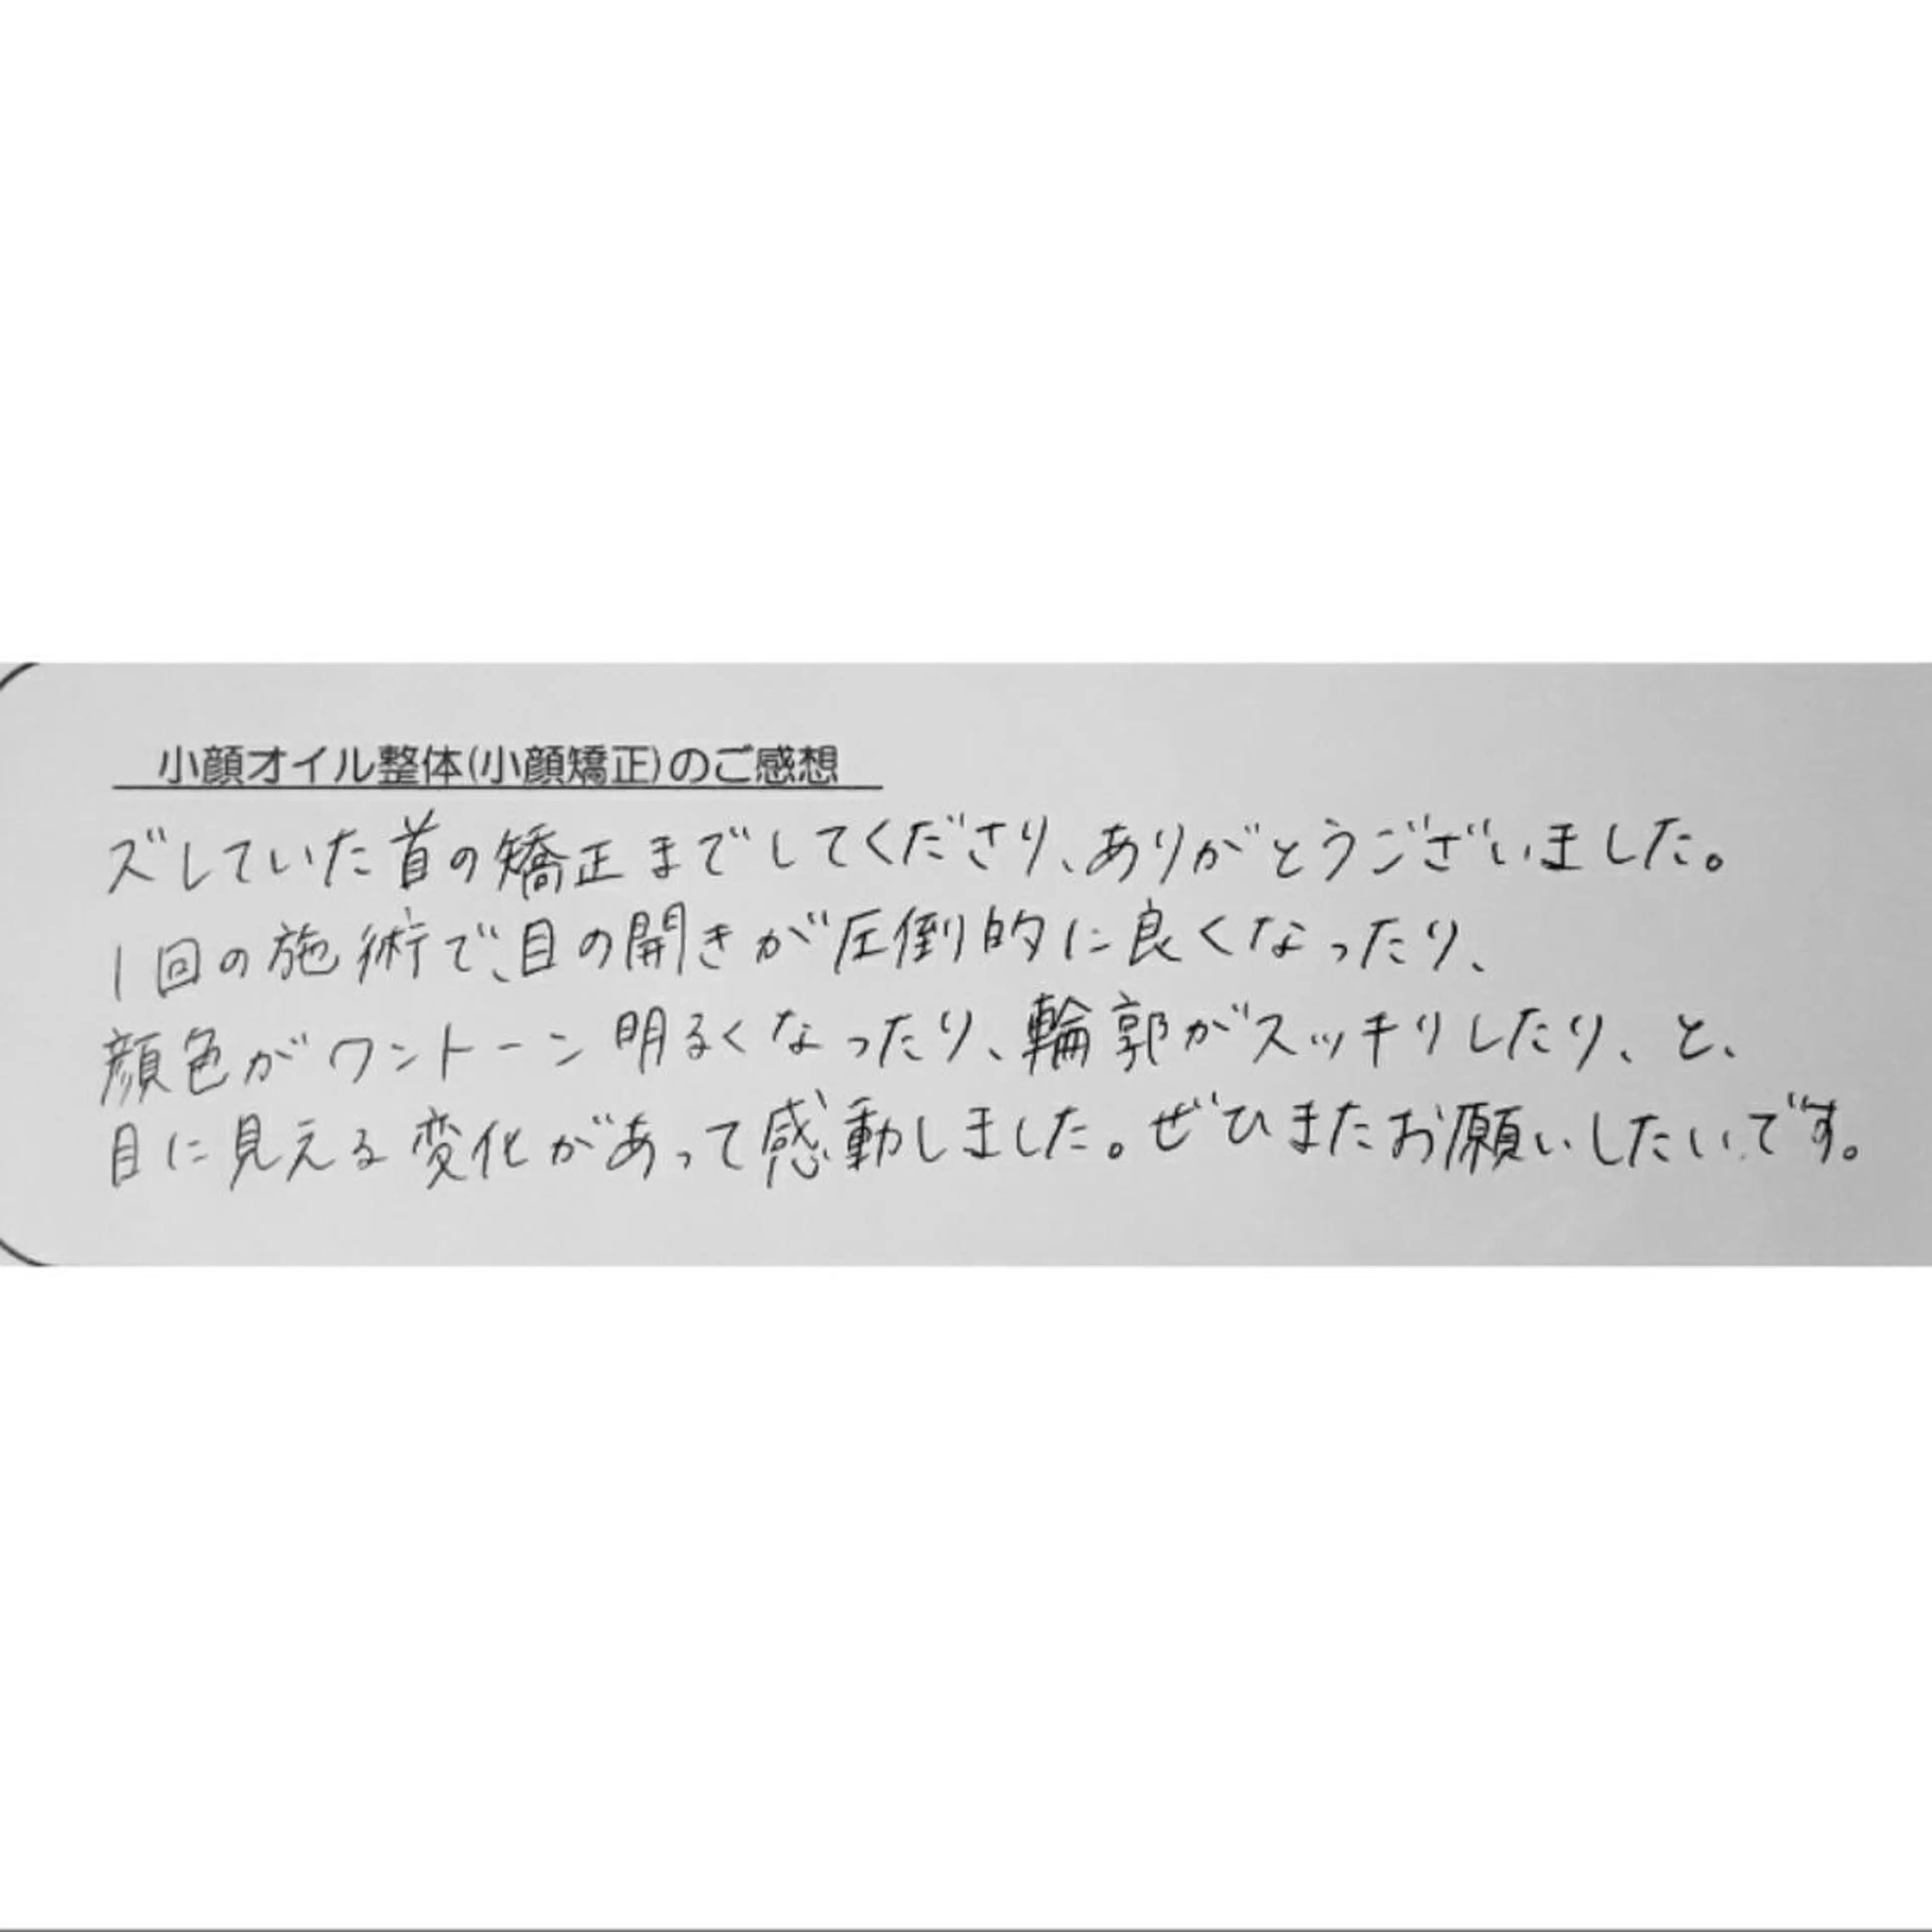 小顔オイル整体(小顔矯正)のご感想
ズしていた首の矯正までしてくださり、ありがとうございました。
1回の施術で、目の開きが圧倒的に良くなったり、
顔色がワントーン明るくなったり、輪郭がスッキリしたり、と、
目に見える変化があって感動しました。ぜひまたお願いしたいです。